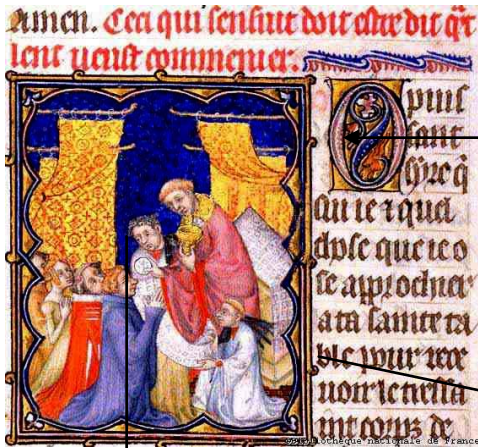 amen. Ceci qui sensuit doit estre dit qͣt
lent veust commenuer:
O puis
sant
sire q̃
sui ie ⁊ quel
chose que ie o
se approchier
a ta sainte ta
ble pour rece
uoir le tressa
int corps de
Bibliothèque nationale de France